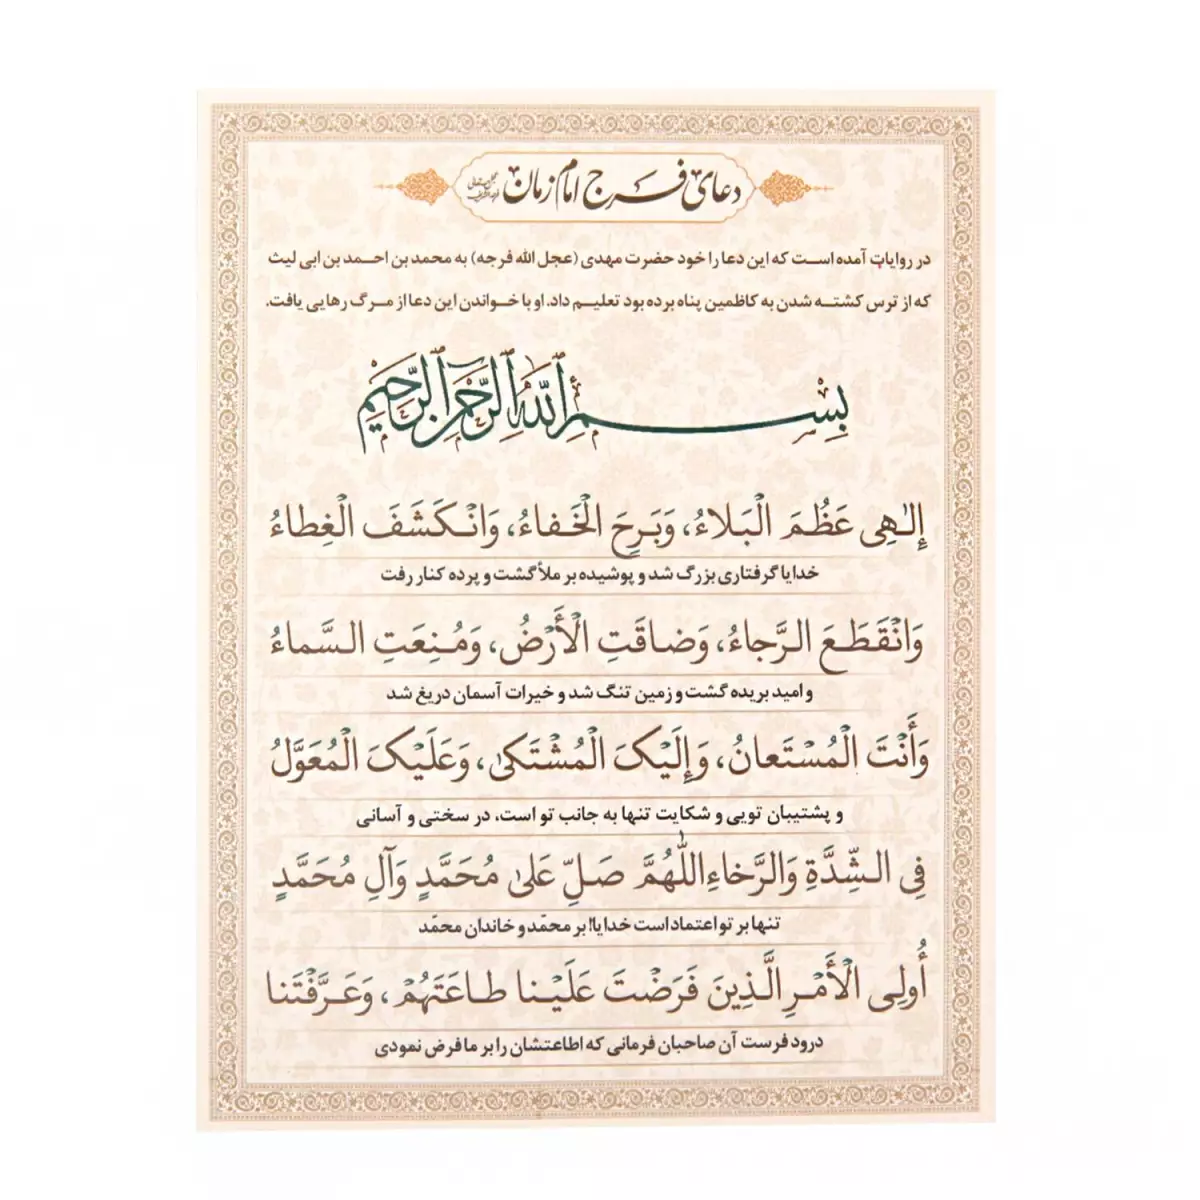 دعای فرج امام زمان
در روایات آمده است که این دعا را خود حضرت مهدی (عجل الله فرجه) به محمد بن احمد بن ابی لیث
که از ترس کشته شدن به کاظمین پناه برده بود تعلیم داد. او با خواندن این دعا از مرگ رهایی یافت.
بِسْمِ ٱللَّهِ ٱلرَّحْمٰنِ ٱلرَّحِيمِ
إِلٰهِی عَظُمَ الْبَلاءُ، وَبَرِحَ الْخَفاءُ، وَانْکَشَفَ الْغِطاءُ
خدایا گرفتاری بزرگ شد و پوشیده بر ملأ گشت و پرده کنار رفت
وَانْقَطَعَ الرَّجاءُ، وَضاقَتِ الْأَرْضُ، وَمُنِعَتِ السَّماءُ
و امید بریده گشت و زمین تنگ شد و خیرات آسمان دریغ شد
وَأَنْتَ الْمُسْتَعانُ، وَإِلَیْکَ الْمُشْتَکیٰ، وَعَلَیْکَ الْمُعَوَّلُ
و پشتیبان تویی و شکایت تنها به جانب تو است، در سختی و آسانی
فِی الشِّدَّةِ وَالرَّخاءِ اللّٰهُمَّ صَلِّ عَلیٰ مُحَمَّدٍ وَآلِ مُحَمَّدٍ
تنها بر تو اعتماد است خدایا! بر محمّد و خاندان محمّد
أُولِی الْأَمْرِ الَّذِینَ فَرَضْتَ عَلَیْنا طاعَتَهُمْ، وَعَرَّفْتَنا
درود فرست آن صاحبان فرمانی که اطاعتشان را بر ما فرض نمودی